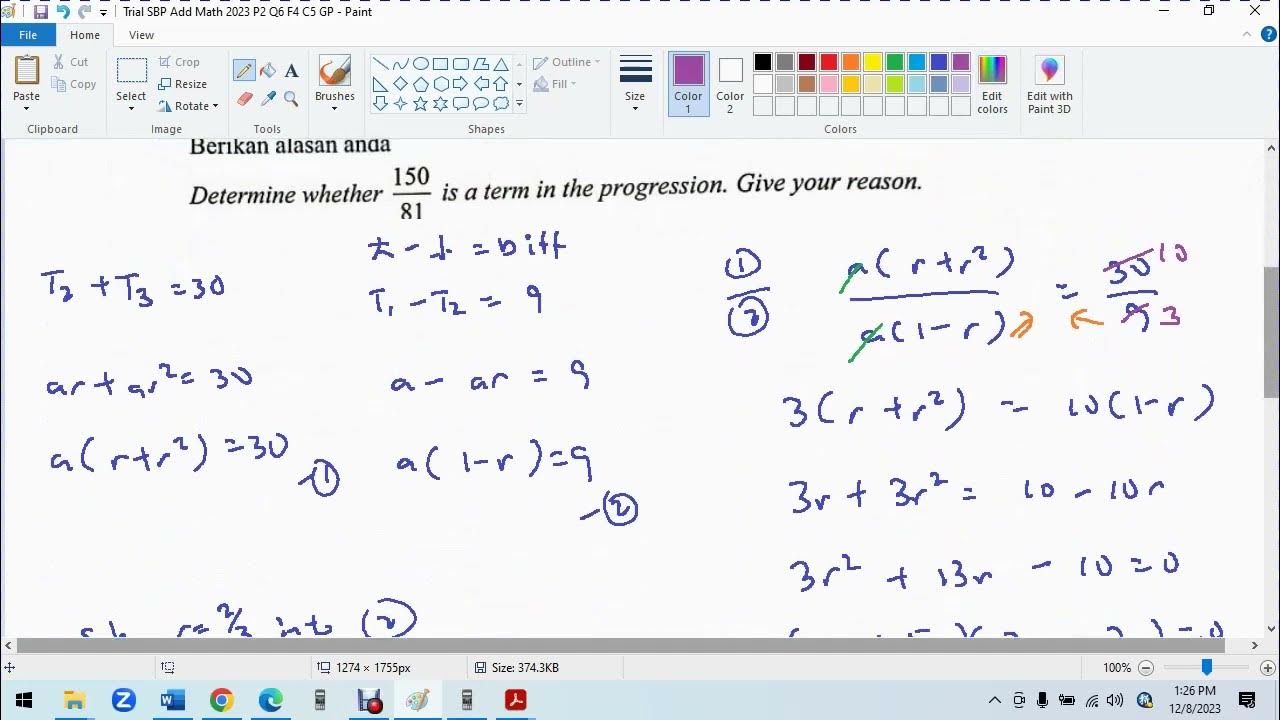 Trial SBP Add Math 2023 P2 Q6 F4 C5 GP - Paint
File Home View
Paste
Cut
Copy
Clipboard
Select
Crop
Resize
Rotate
Image
Tools
Brushes
Shapes
Outline
Fill
Size
Color 1
Color 2
Colors
Edit colors
Edit with Paint 3D
Berikan alasan anda
Determine whether 150/81 is a term in the progression. Give your reason.
T₂ + T₃ = 30
ar + ar² = 30
a(r+r²) = 30 – ①
= Diff
T₁ – T₂ = 9
a – ar = 9
a(1–r) = 9
– ②
①/② a(r+r²)/a(1–r) = 30/9 10 3
3(r+r²) = 10(1–r)
3r + 3r² = 10 – 10r
3r² + 13r – 10 = 0
r = 2/3 into ②
= 0
1274 × 1755px
Size: 374.3KB
100%
1:26 PM
12/8/2023